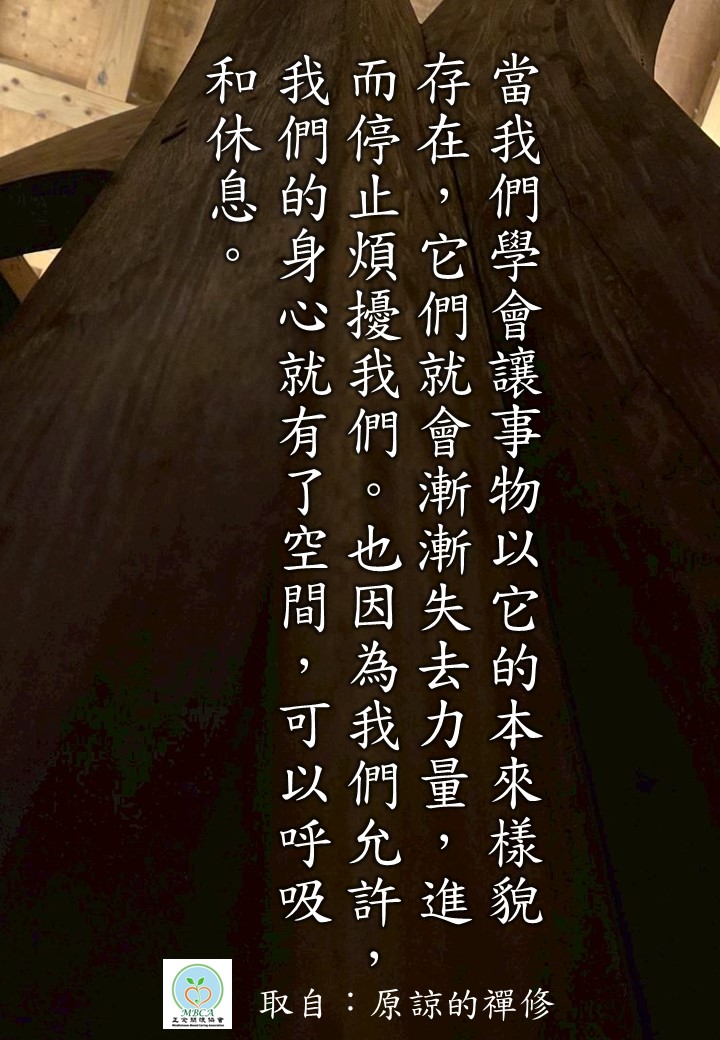 當我們學會讓事物以它的本來樣貌
存在，它們就會漸漸失去力量，進
而停止煩擾我們。也因為我們允許，
我們的身心就有了空間，可以呼吸
和休息。
取自：原諒的禪修
MBCA
正念關懷協會
Mindfulness-Based Caring Association